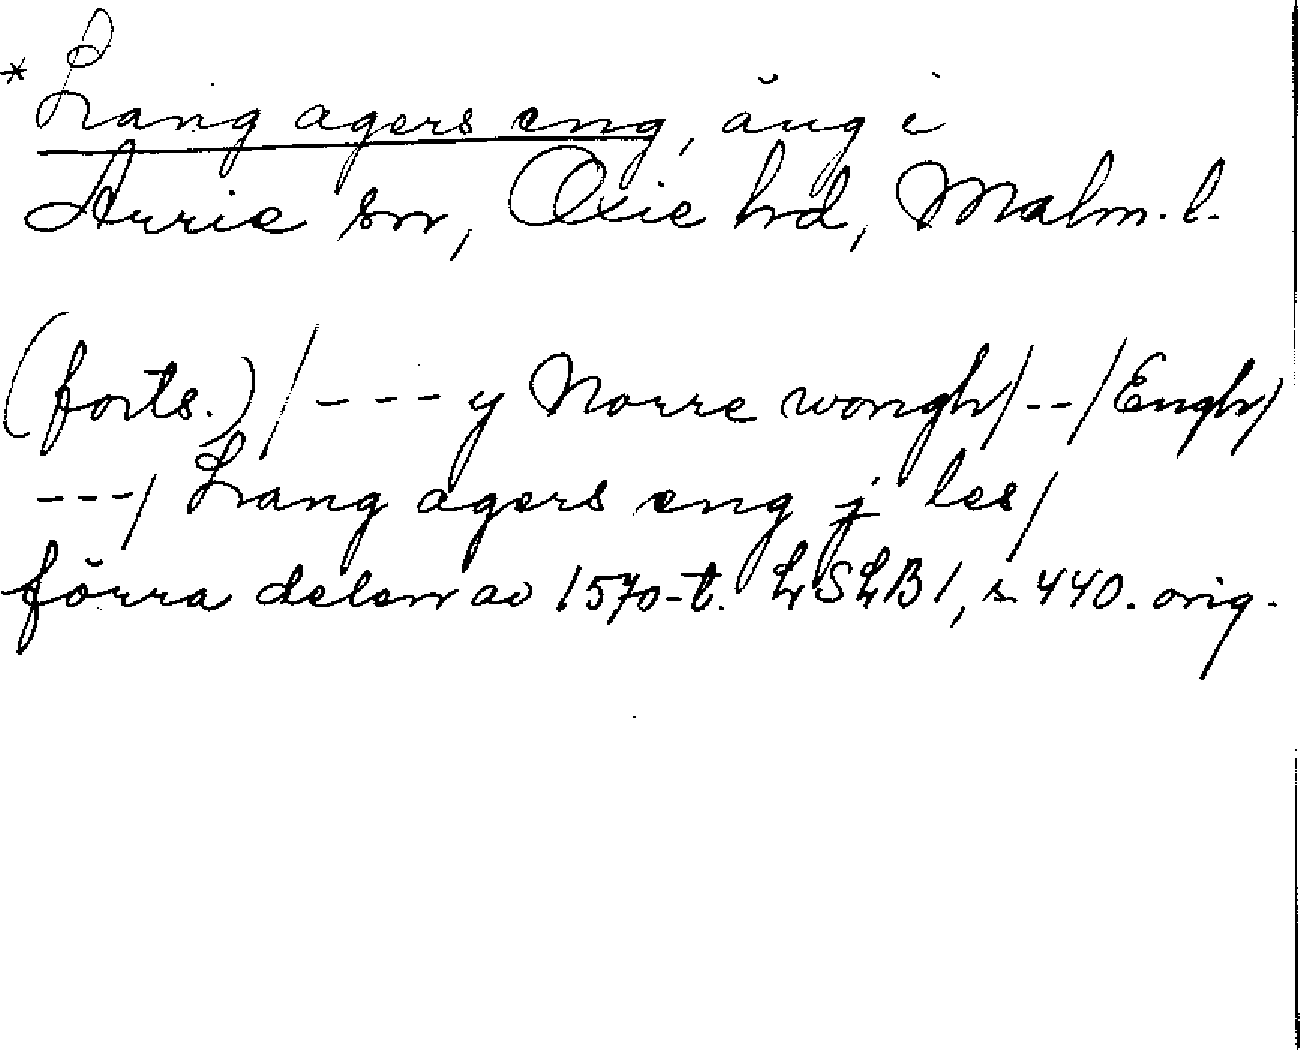 * Lang agers eng, äng i
Arrie sn, Oxie hd, Malm. l.
(forts.) /--- y Norre wongh/--/Engh/
---/ Lang agers eng j les/
förra delen av 1570-t. LSLB 1, s 440. orig.